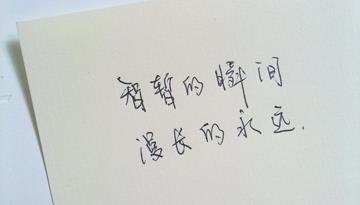 智暂的瞬间
漫长的永远.